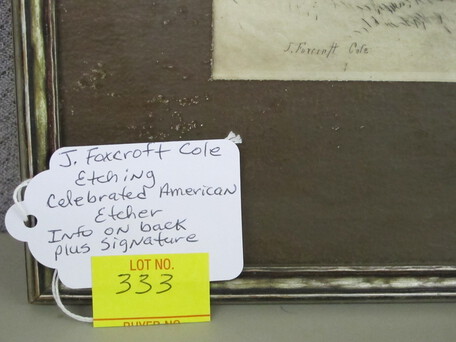 J. Foxcroft Cole
J. Foxcroft Cole
Etching
Celebrated American
Etcher
Info on back
plus signature
LOT NO.
333
BUYER NO.